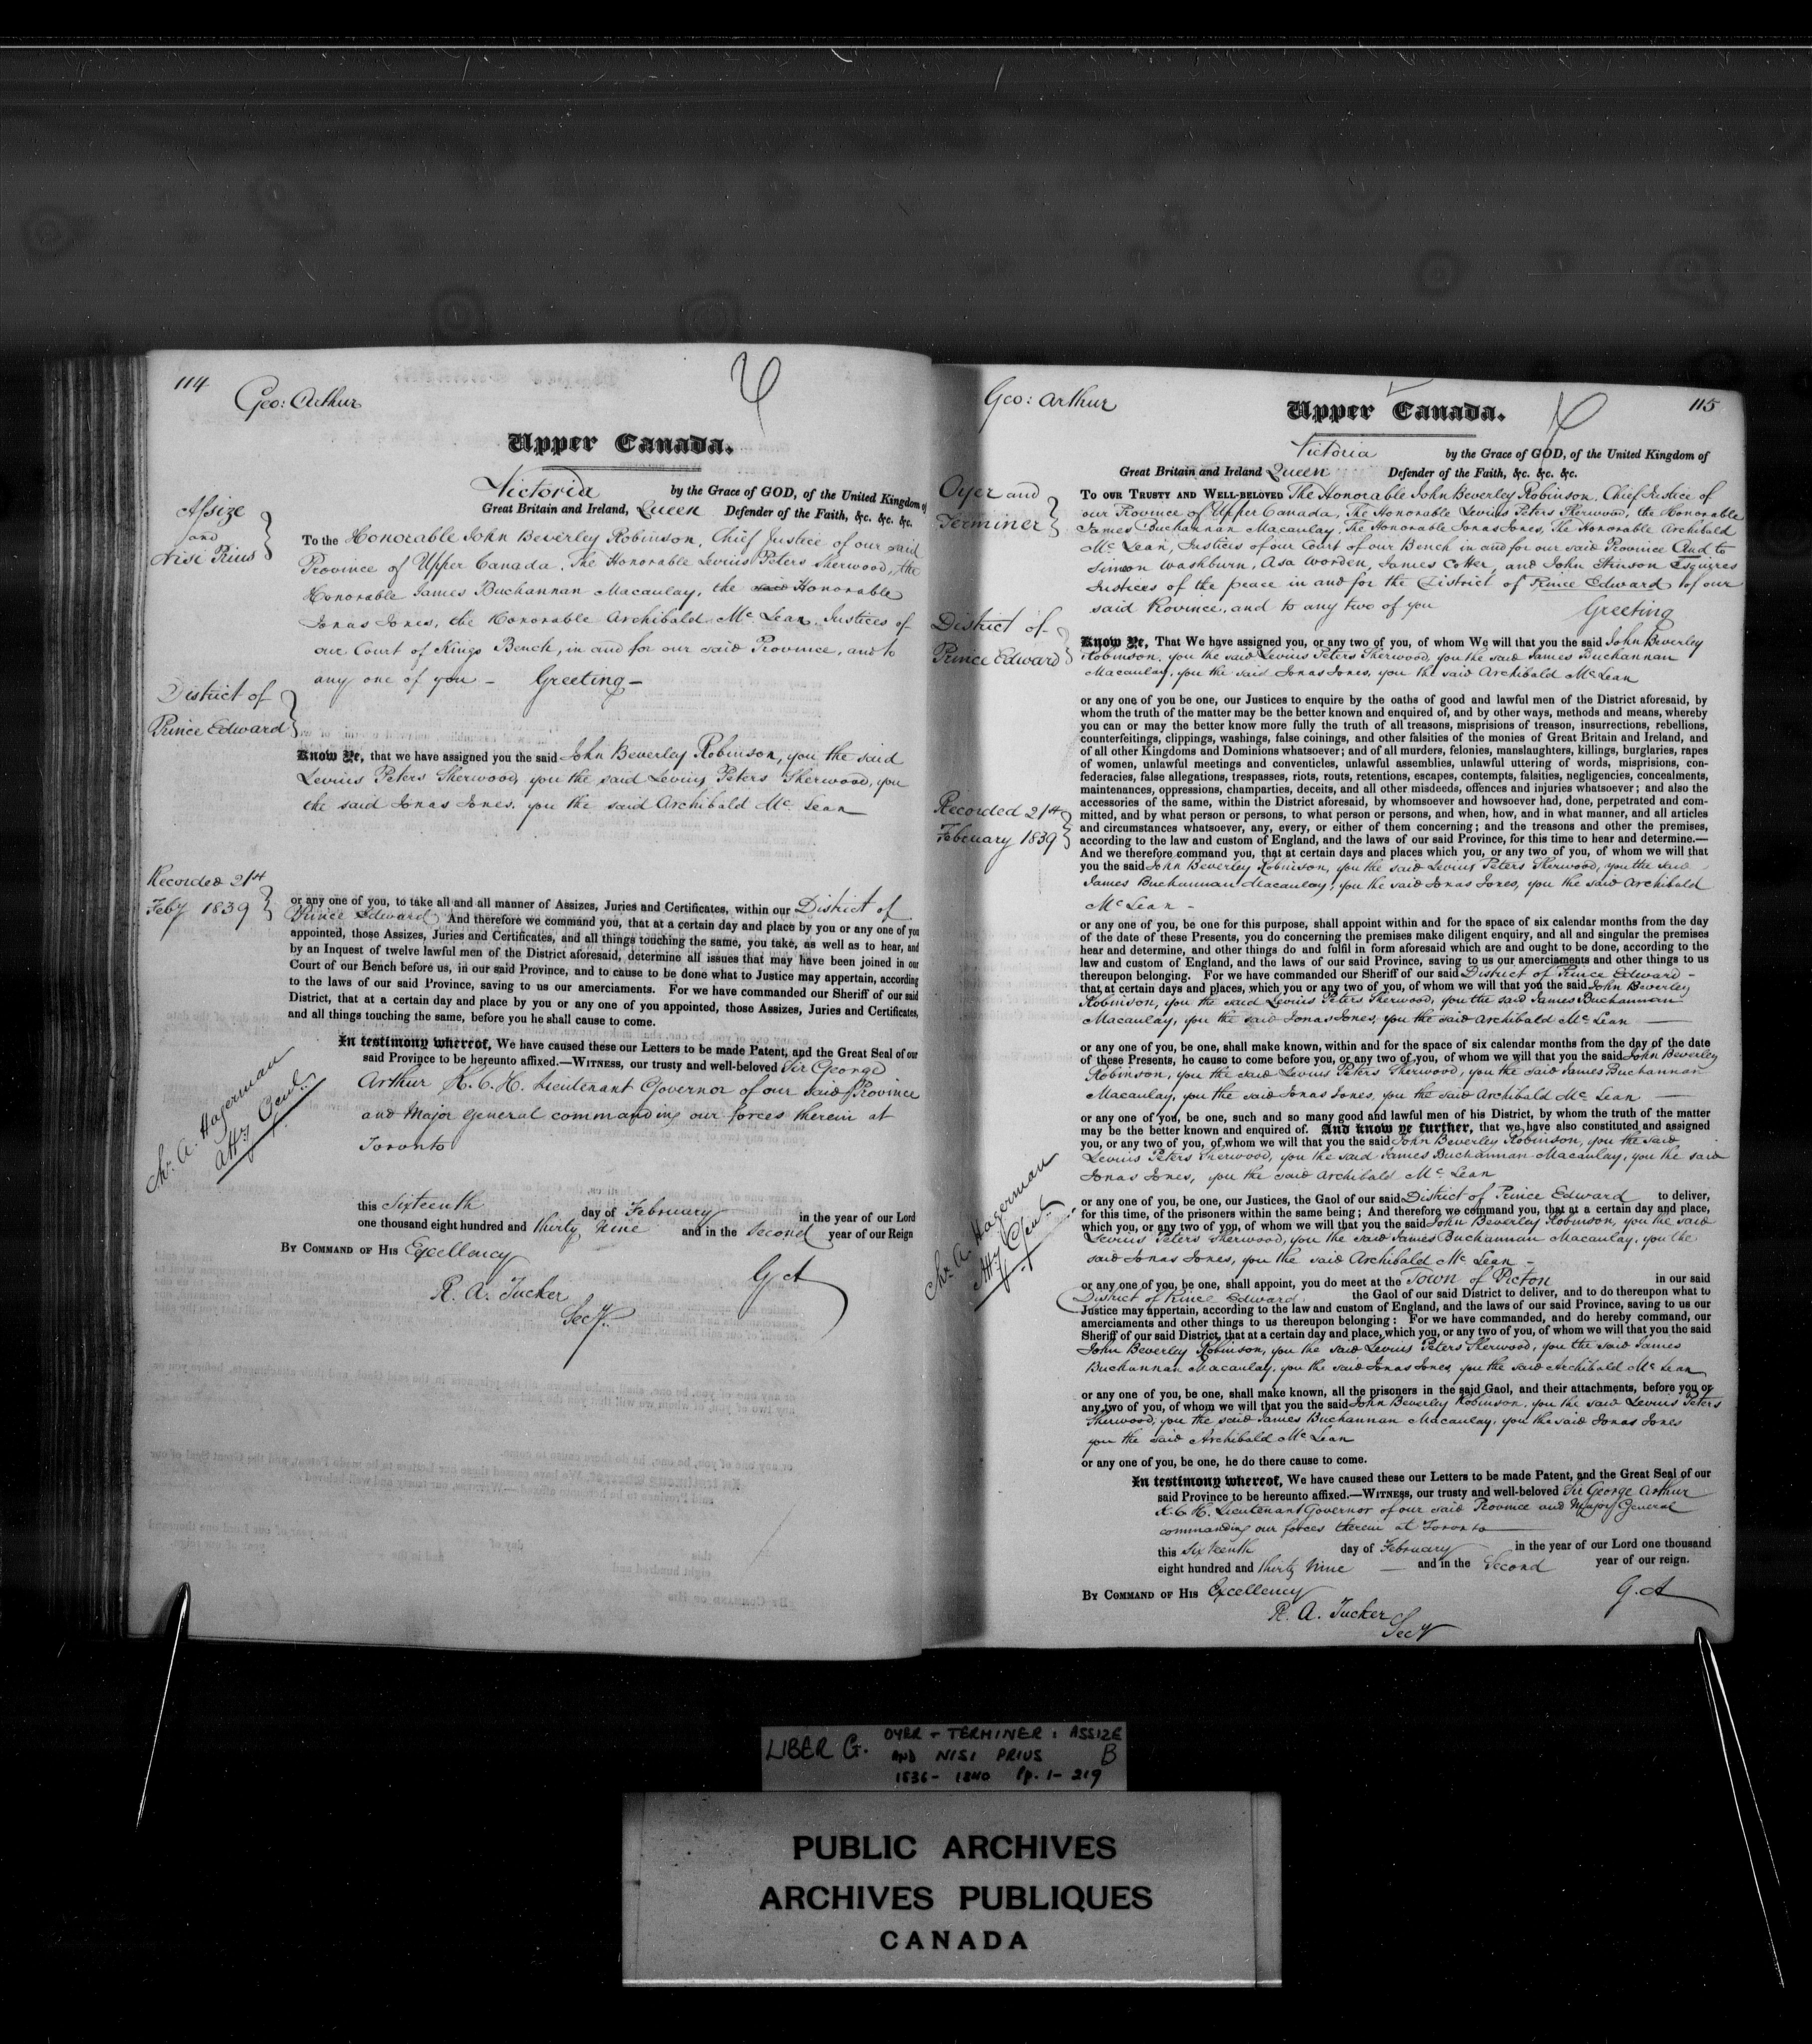 114
Geo: Arthur
Upper Canada.
Assize
and
Nisi Prius
District of
Prince Edward
Recorded 21st
Feby 1839
Chr. A. Hagerman
Atty Genl.
Victoria by the Grace of GOD, of the United Kingdom of
Great Britain and Ireland, Queen Defender of the Faith, &c. &c. &c.
To the Honorable John Beverley Robinson, Chief Justice of our said
Province of Upper Canada, The Honorable Levius Peters Sherwood, the
Honorable James Buchannan Macaulay, the said Honorable
Jonas Jones, the Honorable Archibald Mc Lean, Justices of
our Court of Kings Bench, in and for our said Province, and to
any one of you – Greeting –
Know Ye, that we have assigned you the said John Beverley Robinson, you the said
Levius Peters Sherwood, you the said Levius Peters Sherwood, you
the said Jonas Jones, you the said Archibald Mc Lean
or any one of you, to take all and all manner of Assizes, Juries and Certificates, within our District of
Prince Edward And therefore we command you, that at a certain day and place by you or any one of you
appointed, those Assizes, Juries and Certificates, and all things touching the same, you take, as well as to hear, and
by an Inquest of twelve lawful men of the District aforesaid, determine all issues that may have been joined in our
Court of our Bench before us, in our said Province, and to cause to be done what to Justice may appertain, according
to the laws of our said Province, saving to us our amerciaments. For we have commanded our Sheriff of our said
District, that at a certain day and place by you or any one of you appointed, those Assizes, Juries and Certificates,
and all things touching the same, before you he shall cause to come.
In testimony whereof, We have caused these our Letters to be made Patent, and the Great Seal of our
said Province to be hereunto affixed.—WITNESS, our trusty and well-beloved Sir George
Arthur K.C.H. Lieutenant Governor of our said Province
and Major General commanding our forces therein at
Toronto
this Sixteenth day of February in the year of our Lord
one thousand eight hundred and thirty Nine and in the Second year of our Reign
BY COMMAND OF HIS Excellency
G A
R. A. Tucker
Secy.
115
Geo: Arthur
Upper Canada.
Oyer and
Terminer
District of
Prince Edward
Recorded 21st
February 1839
Chr. A. Hagerman
Atty Genl.
Victoria by the Grace of GOD, of the United Kingdom of
Great Britain and Ireland Queen Defender of the Faith, &c. &c. &c.
TO OUR TRUSTY AND WELL-BELOVED The Honorable John Beverley Robinson, Chief Justice of
our Province of Upper Canada, The Honorable Levius Peters Sherwood, the Honorable
James Buchannan Macaulay, The Honorable Jonas Jones, the Honorable Archibald
Mc Lean, Justices of our Court of our Bench in and for our said Province And to
Simeon Washburn, Asa Worden, James Cotter, and John Stinson Esquires
Justices of the peace in and for the District of Prince Edward of our
said Province, and to any two of you Greeting
Know Ye, That We have assigned you, or any two of you, of whom We will that you the said John Beverley
Robinson, you the said Levius Peters Sherwood, you the said James Buchannan
Macaulay, you the said Jonas Jones, you the said Archibald McLean
or any one of you be one, our Justices to enquire by the oaths of good and lawful men of the District aforesaid, by
whom the truth of the matter may be the better known and enquired of, and by other ways, methods and means, whereby
you can or may the better know more fully the truth of all treasons, misprisions of treason, insurrections, rebellions,
counterfeitings, clippings, washings, false coinings, and other falsities of the monies of Great Britain and Ireland, and
of all other Kingdoms and Dominions whatsoever; and of all murders, felonies, manslaughters, killings, burglaries, rapes
of women, unlawful meetings and conventicles, unlawful assemblies, unlawful uttering of words, misprisions, con-
federacies, false allegations, trespasses, riots, routs, retentions, escapes, contempts, falsities, negligencies, concealments,
maintenances, oppressions, champarties, deceits, and all other misdeeds, offences and injuries whatsoever; and also the
accessories of the same, within the District aforesaid, by whomsoever and howsoever had, done, perpetrated and com-
mitted, and by what person or persons, to what person or persons, and when, how, and in what manner, and all articles
and circumstances whatsoever, any, every, or either of them concerning; and the treasons and other the premises,
according to the law and custom of England, and the laws of our said Province, for this time to hear and determine.—
And we therefore command you, that at certain days and places which you, or any two of you, of whom we will that
you the said John Beverley Robinson, you the said Levius Peters Sherwood, you the said
James Buchannan Macaulay, you the said Jonas Jones, you the said Archibald
McLean –
or any one of you, be one for this purpose, shall appoint within and for the space of six calendar months from the day
of the date of these Presents, you do concerning the premises make diligent enquiry, and all and singular the premises
hear and determine, and other things do and fulfil in form aforesaid which are and ought to be done, according to the
law and custom of England, and the laws of our said Province, saving to us our amerciaments and other things to us
thereupon belonging. For we have commanded our Sheriff of our said District of Prince Edward –
that at certain days and places, which you or any two of you, of whom we will that you the said John Beverley
Robinson, you the said Levius Peters Sherwood, you the said James Buchannan
Macaulay, you the said Jonas Jones, you the said Archibald Mc Lean
or any one of you, be one, shall make known, within and for the space of six calendar months from the day of the date
of these Presents, he cause to come before you, or any two of you, of whom we will that you the said John Beverley
Robinson, you the said Levius Peters Sherwood, you the said James Buchannan
Macaulay, you the said Jonas Jones, you the said Archibald Mc Lean
or any one of you, be one, such and so many good and lawful men of his District, by whom the truth of the matter
may be the better known and enquired of. And know ye further, that we have also constituted and assigned
you, or any two of you, of whom we will that you the said John Beverley Robinson, you the said
Levius Peters Sherwood, you the said James Buchannan Macaulay, you the said
Jonas Jones, you the said Archibald Mc Lean
or any one of you, be one, our Justices, the Gaol of our said District of Prince Edward to deliver,
for this time, of the prisoners within the same being; And therefore we command you, that at a certain day and place,
which you, or any two of you, of whom we will that you the said John Beverley Robinson, you the said
Levius Peters Sherwood, you the said James Buchannan Macaulay, you the
said Jonas Jones, you the said Archibald Mc Lean –
or any one of you, be one, shall appoint, you do meet at the Town of Picton in our said
District of Prince Edward the Gaol of our said District to deliver, and to do thereupon what to
Justice may appertain, according to the law and custom of England, and the laws of our said Province, saving to us our
amerciaments and other things to us thereupon belonging: For we have commanded, and do hereby command, our
Sheriff of our said District, that at a certain day and place, which you, or any two of you, of whom we will that you the said
John Beverley Robinson, you the said Levius Peters Sherwood, you the said James
Buchannan Macaulay, you the said Jonas Jones, you the said Archibald Mc Lean
or any one of you, be one, shall make known, all the prisoners in the said Gaol, and their attachments, before you or
any two of you, of whom we will that you the said John Beverley Robinson, you the said Levius Peters
Sherwood, you the said James Buchannan Macaulay, you the said Jonas Jones
you the said Archibald Mc Lean
or any one of you, be one, he do there cause to come.
In testimony whereof, We have caused these our Letters to be made Patent, and the Great Seal of our
said Province to be hereunto affixed.—WITNESS, our trusty and well-beloved Sir George Arthur
K.C.H. Lieutenant Governor of our said Province and Major General
commanding our forces therein at Toronto
this Sixteenth day of February in the year of our Lord one thousand
eight hundred and thirty Nine – and in the Second year of our reign.
BY COMMAND OF HIS Excellency
G. A
R. A. Tucker
Secy
LIBER G. OYER + TERMINER: ASSIZE
AND NISI PRIUS B
1836 - 1840 Pp. 1 - 219
PUBLIC ARCHIVES
ARCHIVES PUBLIQUES
CANADA